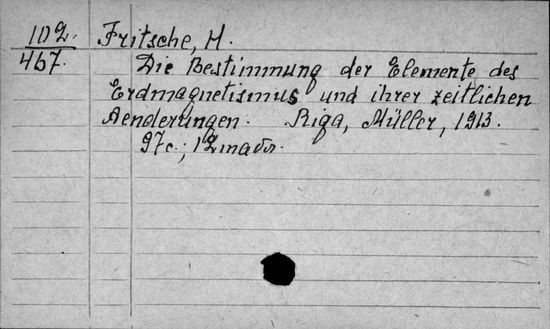 102 Fritsche, H.
467. Die Bestimmung der Elemente des
Erdmagnetismus und ihrer zeitlichen
Aenderungen. Riga, Müller, 1913.
97c.;